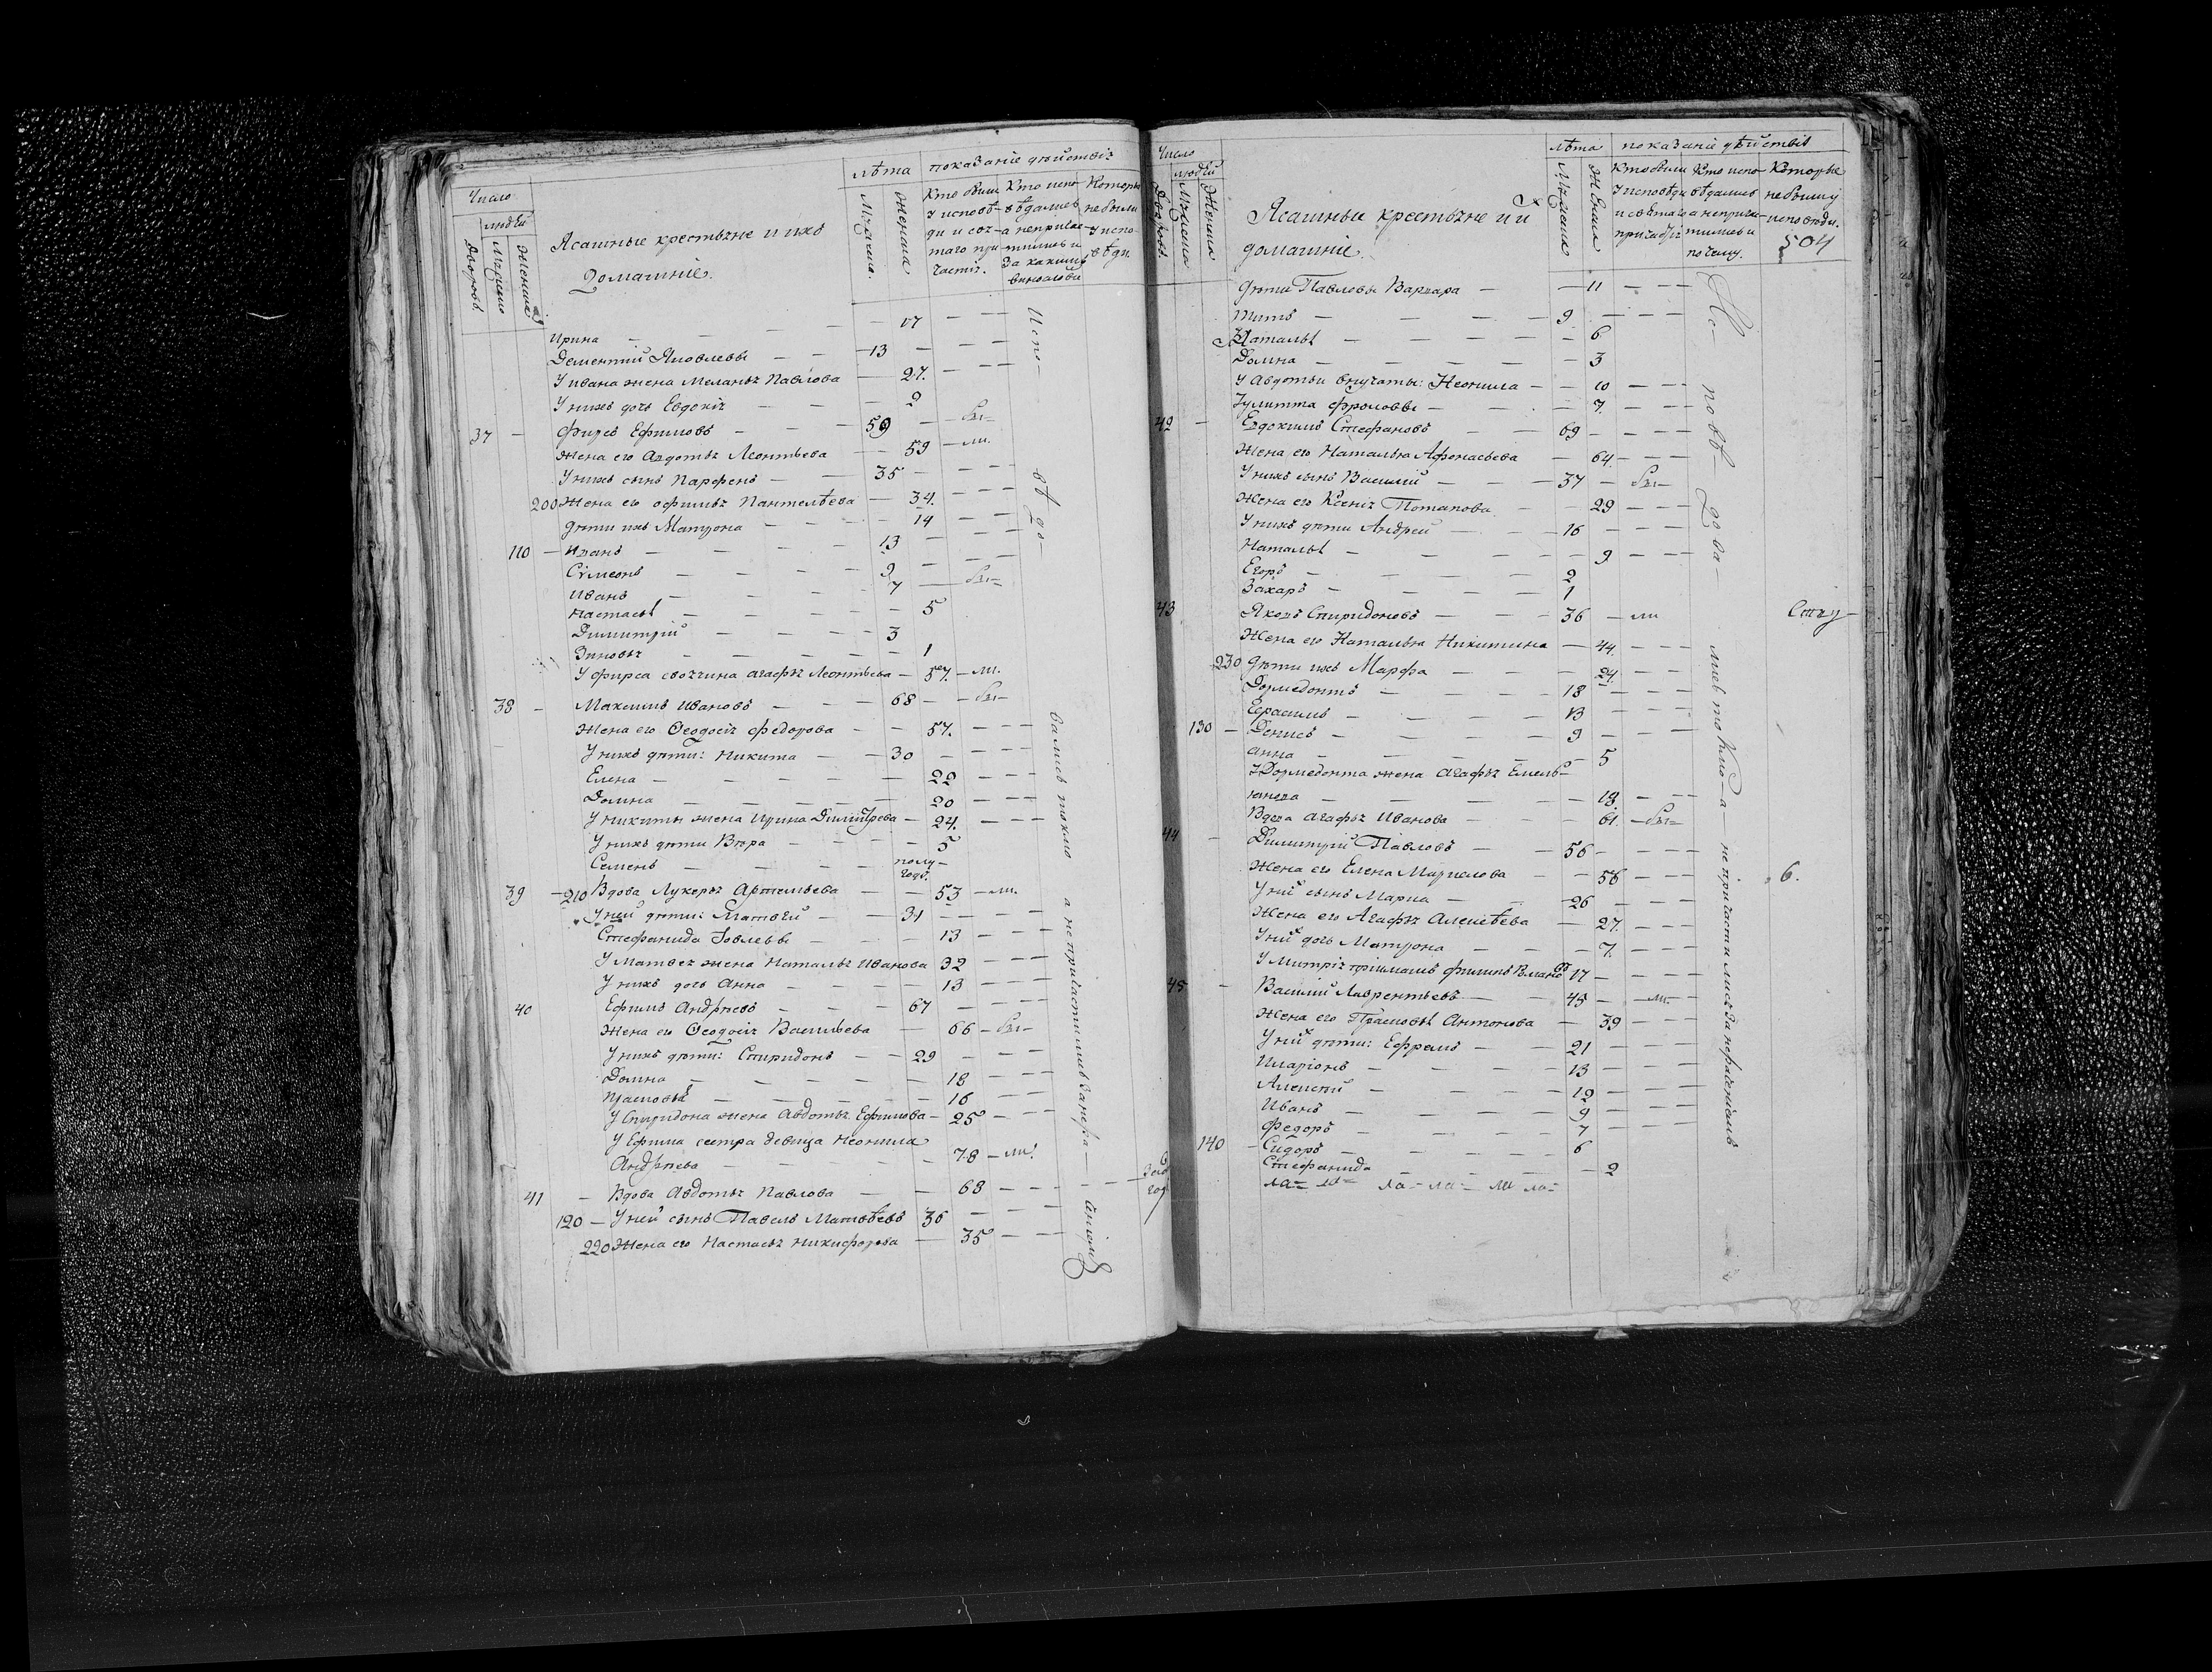 Число
людей
Дворовъ.
Мужска
Женска
Ясашные крестьяне и ихъ
Домашніе.
лѣта
Мужска.
Женска
показаніе дѣйствія
Кто были
у исповѣ-
ди и свя-
таго при-
частія.
Кто испо-
вѣдались
а неприча-
стились и
за какимъ
винословіемъ
Которые
небыли
у испо-
вѣди.
Ирина — 17
Дементій Яковлевы — 13
У ивана жена Меланья Павлова — 27.
У нихъ дочь Евдокія — 2
37 — Фирсъ Ефимовъ — 59 — бы-
жена его Авдотья Леонтьева — 59 — ли.
У нихъ сынъ Парфенъ — 35
200 Жена его офимья Пантелѣева — 34.
дѣти ихъ Матрона — 14
110 — Иванъ — 13
Сѵмеонъ — 9
Иванъ — 7 — бы-
Настасья — 5
Димитрій — 3
Зиновья — 1
У Фирса своячина агафья Леонтьева — 57. — ли.
38 — Максимъ Ивановъ — 68 — бы-
Жена его Ѳеодосія Федорова — 57.
У нихъ дѣти: Никита — 30
Елена — 22
Домна — 20
У Никиты жена Ирина Димитрева — 24.
У нихъ дѣти Вѣра — 5
Семенъ — полу-
году.
39 — 210 Вдова Лукерья Артемьева — 53 — ли.
У ней дѣти: Матѳей — 31
Стефанида Іовлевы — 13
У Матвея жена Наталья Иванова 32
У нихъ дочь Анна — 13
40 Ефимъ Андрѣевъ — 67
Жена его Ѳеодосія Васильева — 66 — бы-
У нихъ дѣти: Спиридонъ — 29
Домна — 18
Прасковья — 16
У Спиридона жена Авдотья Ефимова — 25
У Ефима сестра девица Неонила
Андрѣева — 78 — ли.
41 — Вдова Авдотья Павлова — 68
120 — У ней сынъ Павелъ Матвѣевъ 36
220 Жена его Настасья Никифорова — 35
Испо-
вѣдо-
вались токмо а не причастились за нера-
дѣніемъ
Число
людей
Дворовъ.
Мужска
Женска
Ясашные крестьяне и и
домашніе.
лѣта
Мужска
Женска
показаніе дѣйствія
Кто были
у исповѣди
и святаго
причастія
Кто испо-
вѣдались
а неприча-
тились и
почему.
Которые
небыли у
исповѣди.
504
дѣти Павловы Варвара — 11
Титъ — 9
Наталья — 6
Домна — 3
У Авдотьи внучаты: Неонила — 10
Іулитта Фроловы — 7.
42 — Евдокимъ Стефановъ — 69
Жена его Наталья Афонасьева — 64.
У нихъ сынъ Василій — 37 — бы-
Жена его Ксенія Потапова — 29
У нихъ дѣти Андрей — 16
Наталья — 9
Егоръ — 2
Захаръ — 1
43 Яковъ Спиридоновъ — 36 — ли
Жена его Наталья Никитина — 44.
230 дѣти ихъ Марфа — 24.
Дормедонтъ — 18
Герасимъ — 13
130 — Денисъ — 9
анна — 5
У Дормедонта жена Агафья Емель-
янова — 18.
Вдова Агафья Иванова — 61. — бы-
44 — Димитрій Павловъ — 56
Жена его Елена Маркелова — 56
У ний сынъ Марка — 26
Жена его Агафья Алексѣева — 27.
У ний дочь Матрона — 7.
У Митрія пріимашъ филипъ 17
45 — Василій Лаврентьевъ — 45 — ли.
Жена его Прасковья Антонова — 39
У ний дѣти: Ефремъ — 21
Иларіонъ — 13
Алексѣй — 12
Иванъ — 9
Федоръ — 7
140 — Сидоръ — 6
Стефанида — 2
ла= ла= ла= ла= ла ла=
Ис
повѣ-
дова
лись токмо а не причастились за нераденіемъ
6.